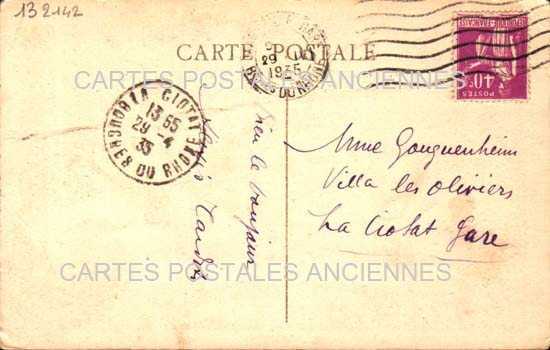 13 2142
CARTE POSTALE
29
1935
BCHES DU RHONE
REPUBLIQUE FRANÇAISE
40c
POSTES
CARTES POSTALES ANCIENNES
LA CIOTAT
13 55
29 - 4
35
BOUCHES DU RHONE
bien le bonjour
Mme Gouguenheim
Villa les oliviers
La Ciotat Gare
CARTES POSTALES ANCIENNES